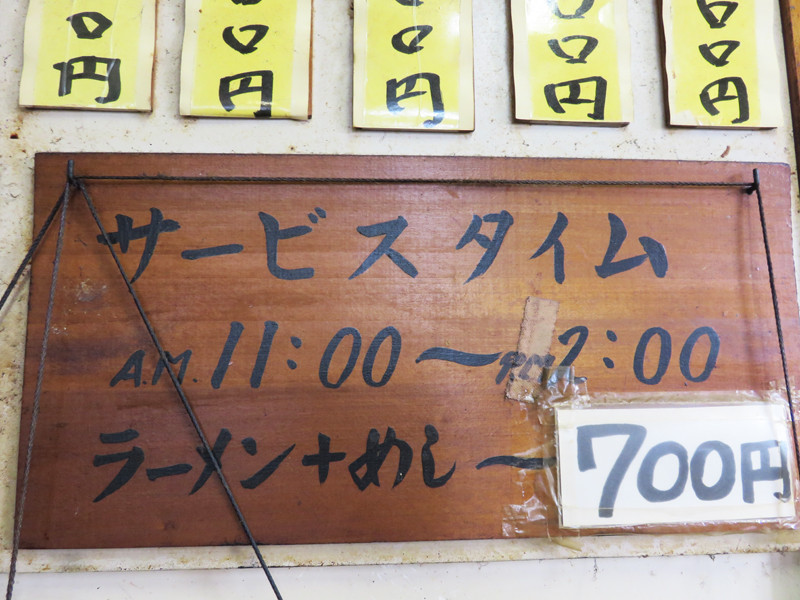 0円
00円
00円
00円
00円
サービスタイム
A.M. 11:00〜P.M 2:00
ラーメン+めし〜700円